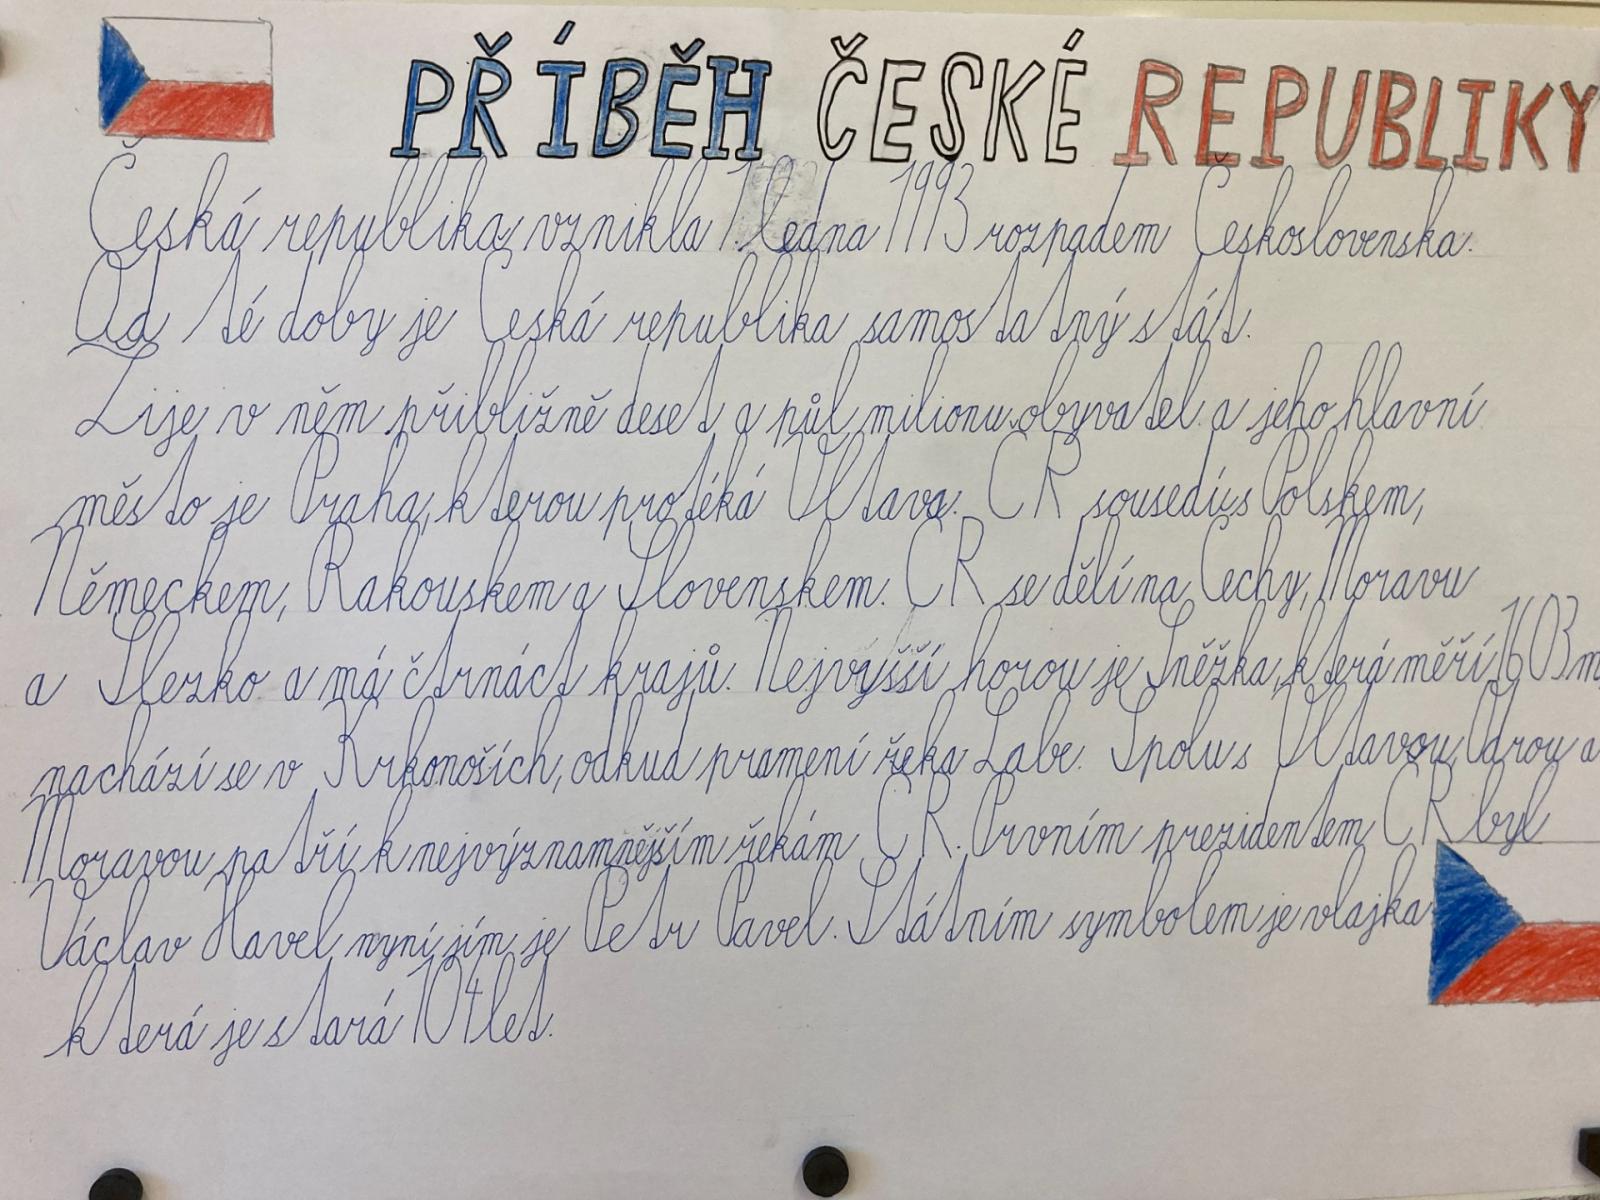 PŘÍBĚH ČESKÉ REPUBLIKY
Česká republika vznikla 1. ledna 1993 rozpadem Československa.
Od té doby je Česká republika samostatný stát.
Žije v něm přibližně deset a půl milionu obyvatel a jeho hlavní
město je Praha, kterou protéká Vltava. ČR sousedí s Polskem,
Německem, Rakouskem a Slovenskem. ČR se dělí na Čechy, Moravu
a Slezko a má čtrnáct krajů. Nejvyšší horou je Sněžka, která měří 1603 m,
nachází se v Krkonoších, odkud pramení řeka Labe. Spolu s Vltavou, Odrou a
Moravou patří k nejvýznamnějším řekám ČR. Prvním prezidentem ČR byl
Václav Havel nyní jím je Petr Pavel. Státním symbolem je vlajka
která je stará 104 let.